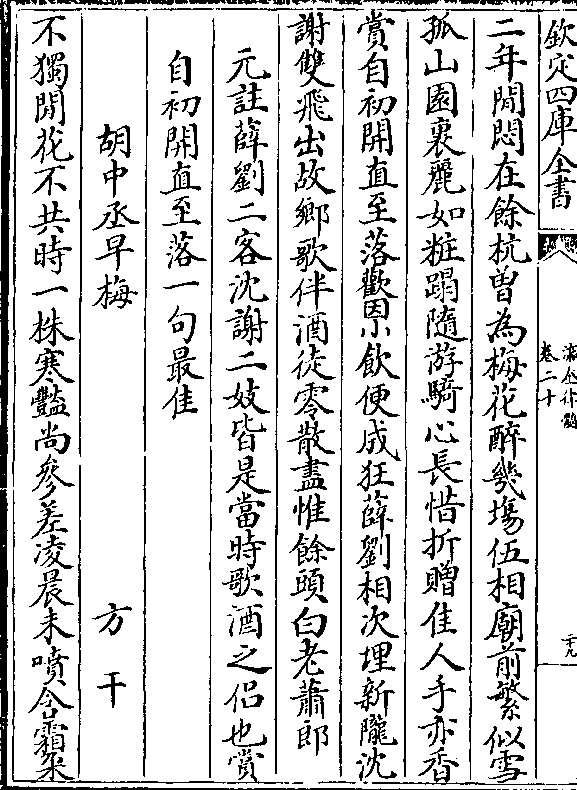 欽定四庫全書
卷二十
二年閒悶在餘杭曽為梅花醉幾塲伍相廟前繁似雪
孤山園裏麗如粧蹋隨游騎心長惜折贈佳人手亦香
賞自初開直至落歡因小飲便成狂薛劉相次埋新隴沈
謝雙飛出故鄉歌伴酒徒零散盡惟餘頭白老蕭郎
元註薛劉二客沈謝二妓皆是當時歌酒之侣也賞
自初開直至落一句最佳
胡中丞早梅 方干
不獨閒花不共時一株寒豔尚參差凌晨未噴含霜朶